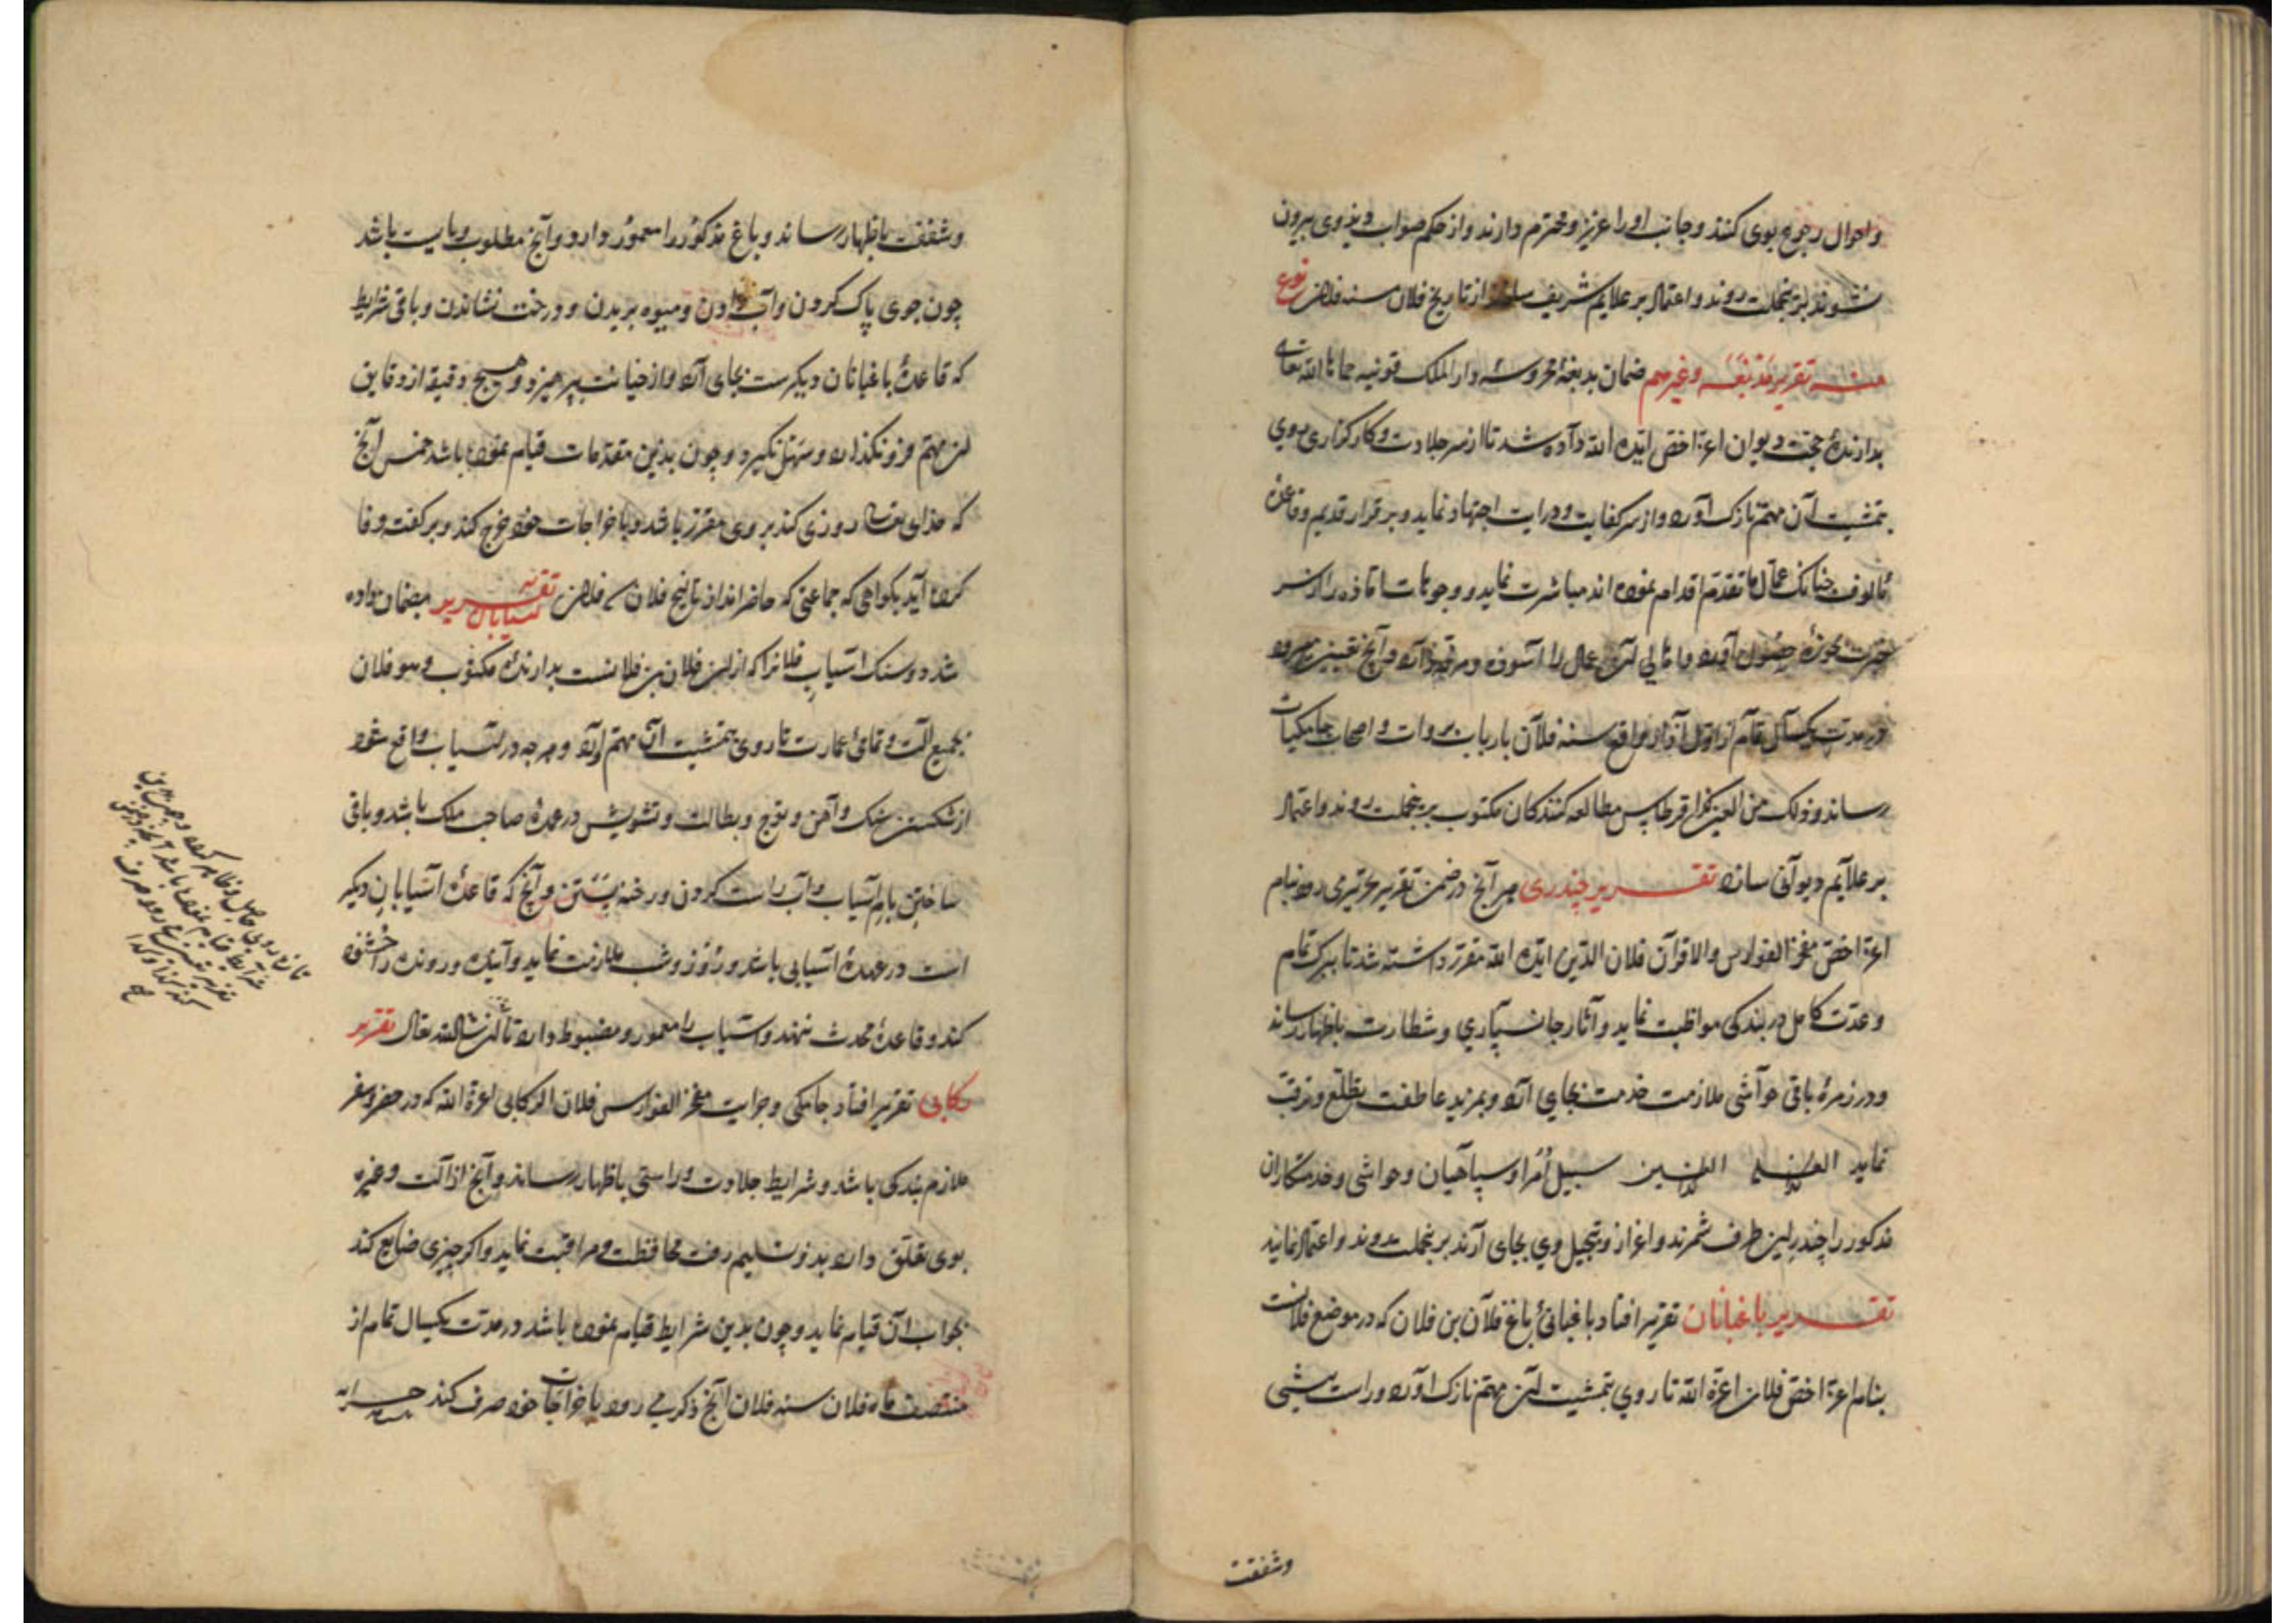 واحوال رجوع بوی کنند وجانب او را عزیز ومحترم دارند واز حکم صواب وی بیرون
نشوند برینجملت روند واعتماد بر علایم شریف از تاریخ فلان سنه فلان نوع
منه تقریر مدبغه وغیرهم ضمان مدبغهٔ محروسه دار الملک قونیه حماها الله تعالی
بدارندهٔ حجت دیوان اعز اخص ایده الله داده شد تا از سر جلادت وکارگزاری روی
بتمشیت آن مهم نازک آورد واز سر کفایت ودرایت اجتهاد نماید وبر قرار قدیم وقاعدهٔ
مألوف چنانک عمال ما تقدم اقدام نموده اند مباشرت نماید ووجوهات را از سر
خبرت بحوزهٔ حصول آورد
در مدت یکسال تمام از اول آذار واقع سنه فلان بارباب بروات واصحاب جامکیات
رساند مطالعه کنندکان مکتوب برینجملت روند واعتماد
بر علایم دیوانی سازند تقریر چندری هر آنچ در ضمن تقریر می رود بنام
اعز اخص مفخر الفوارس والاقران فلان الدین ایده الله مقرر داشته شد تا ببرک تمام
وعدت کامل در بندکی مواظبت نماید وآثار جان سپاری وشطارت باظهار رساند
ودر زمرهٔ باقی حواشی ملازمت خدمت بجای آرد وبمزید عاطفت تطلع وترقب
نماید سبیل امرا وسپاهیان وحواشی وخدمتکاران
مذکور را چندر این طرف شمرند واعزاز وتبجیل وی بجای آرند برینجملت روند واعتماد نمایند
تقریر باغبانان تقریر افتاد باغبانئ باغ فلان بن فلان که در موضع فلانست
بنام اعز اخص فلان اعزه الله تا روی بتمشیت این مهم نازک آورد وراست بینی
وشفقت
وشفقت باظهار رساند وباغ مذکور را معمور دارد وآنچ مطلوب وبایست باشد
چون جوی پاک کردن وآب دادن ومیوه بریدن ودرخت نشاندن وباقی شرایط
که قاعدهٔ باغبانان دیگرست بجای آرد واز خیانت بپرهیزد وهیچ دقیقه از دقایق
این مهم فرو نگذارد وسهل نگیرد وچون بدین مقدمات قیام نموده باشد خمس آنچ
که خدای تعالی روزی کند بر وی مقرر باشد وباخراجات خود خرج کند وبر گفته وفا
کرده آید بگواهی که جماعتی که حاضراند از تاریخ فلان فلان تقریر آسیابان بضمان داده
شد دو سنگ آسیاب فلانرا که از این فلان بن فلانست بدارندهٔ مکتوب وهو فلان
بجمیع آلت وتمامئ عمارت تا روی بتمشیت آن مهم آورد وهرچه در آسیاب واقع شود
از شکستن سنگ وآهن وبطالت وتشویش در عهدهٔ صاحب ملک باشد وباقی
ساختن بام آسیاب وآب راست کردن ورخنه بستن وآنچ که قاعدهٔ آسیابان دیگر
است در عهدهٔ آسیابی باشد وروز وشب ملازمت نماید وآینده ورونده را خشنود
کند وقاعدهٔ محدث ننهند وآسیاب را معمور ومضبوط دارد ان شا الله تعالی تقریر
رکابی تقریر افتاد جامکی وجرایت مفخر الفوارس فلان الرکابی اعزه الله که در حضر وسفر
ملازم بندکی باشد وشرایط جلادت وراستی باظهار رساند وآنچ از آلت وغیره
بوی تعلق دارد بدو تسلیم رفت محافظت ومراقبت نماید واگر چیزی ضایع کند
بجواب آن قیام نماید وچون بدین شرایط قیام نموده باشد در مدت یکسال تمام از
منتصف ماه فلان سنه فلان آنچ ذکر می رود باخراجات خود صرف کند